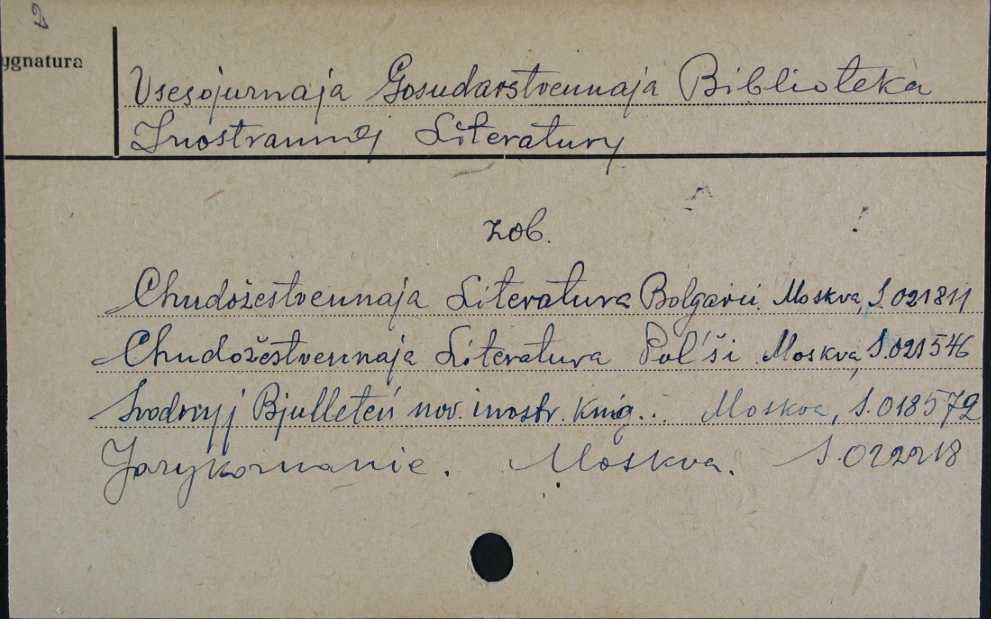 ygnatura
Vsesojuznaja Gosudarstvennaja Biblioteka
Inostrannoj Literatury
zob.
Chudožestvennaja Literatura Bolgarii. Moskva, S.021811
Chudožestvennaja Literatura Pol'ši. Moskva, S.021546
Svodnyj Bjulleteń nov. inostr. knig... Moskva, S.018572
Jazykoznanie. Moskva. S.022218